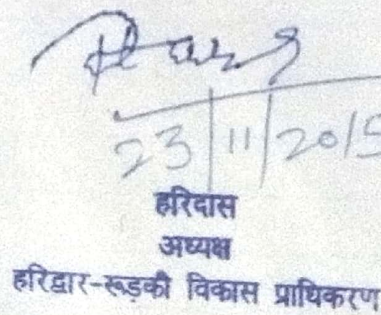 23/11/2015
हरिदास
अध्यक्ष
हरिद्वार-रूड़की विकास प्राधिकरण